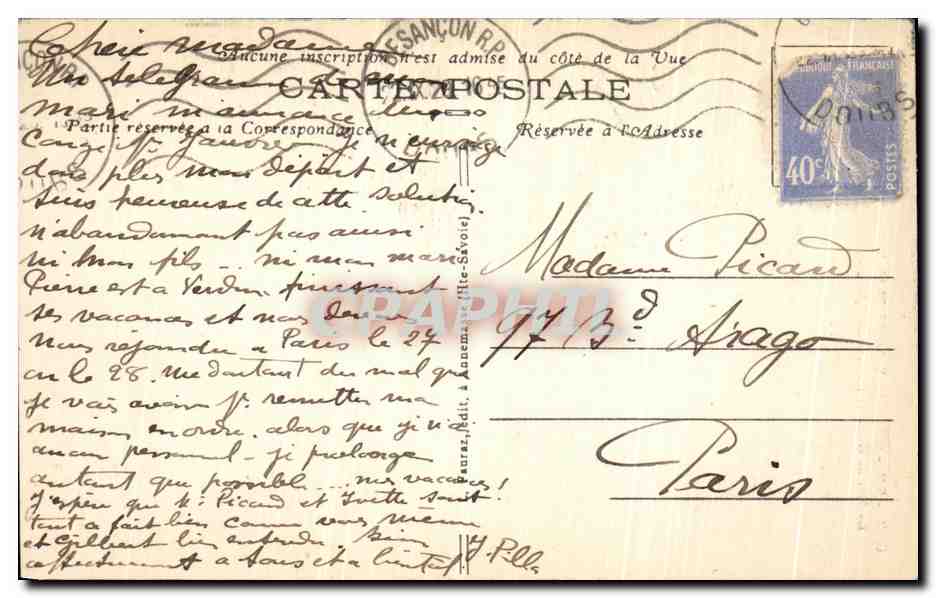 Chère Madame
Un télégramme de mon
mari m'annonce
congé Je n'envisage
donc plus mon départ et
suis heureuse de cette solution
n'abandonnant pas ainsi
ni mon fils – ni mon mari
Pierre est à Verdun finissant
ses vacances et nous devons
nous rejoindre à Paris le 27
ou le 28. me doutant du mal que
je vais avoir pr remettre ma
maison en ordre, alors que je n'ai
aucun personnel – je prolonge
autant que possible mes vacances!
J'espère que Mr Picard et Yvette sont
tout à fait bien comme vous même
et Gilbert bien entendu. Bien
affectueusement à tous et à bientôt
Y. Pilla
Aucune inscription n'est admise du côté de la Vue
CARTE POSTALE
Partie réservée à la Correspondance
Réservée à l'Adresse
BESANÇON R.P.
DOUBS
RÉPUBLIQUE FRANÇAISE
40c
POSTES
Madame Picard
97 Bd. Arago
Paris
édit. à Annemasse (Hte-Savoie)
CPAPHIL